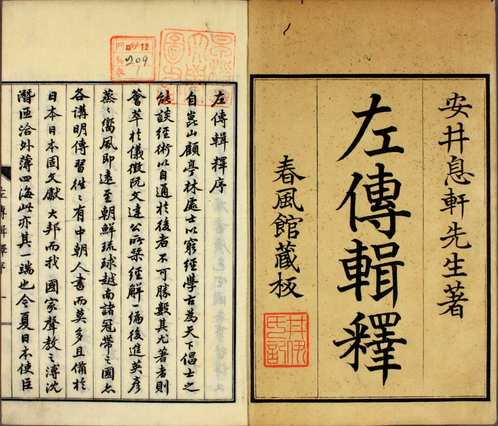 安井息軒先生著
左傳輯釋
春風館藏板
左傳輯釋序
自崑山顧亭林處士以窮經學古為天下倡士之
能談經術以自通於後者不可勝數其尤著者則
薈萃於儀徵阮文達公所栞經解一編後進英彥
蒸〻嚮風即遠至朝鮮琉球越南諸冠帶之國
各講明傳習往〻有中朝人書而莫多且備於
日本日本固文獻大邦而我 國家聲教之 沈
潛區洽外薄四海此亦其一端也今夏日本使臣
左傳輯釋序
12
209